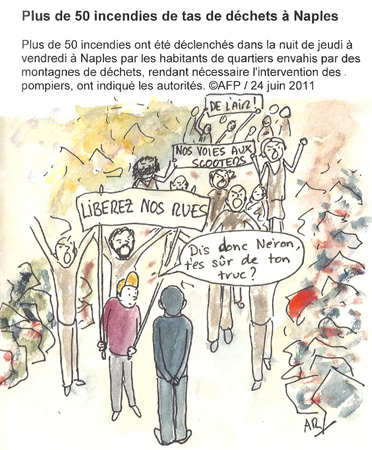 Plus de 50 incendies de tas de déchets à Naples
Plus de 50 incendies ont été déclenchés dans la nuit de jeudi à
vendredi à Naples par les habitants de quartiers envahis par des
montagnes de déchets, rendant nécessaire l'intervention des
pompiers, ont indiqué les autorités. ©AFP / 24 juin 2011
DE L'AIR!
NOS VOIES AUX
SCOOTERS
LIBEREZ NOS RUES
Dis donc Néron,
t'es sûr de ton
truc?
AR